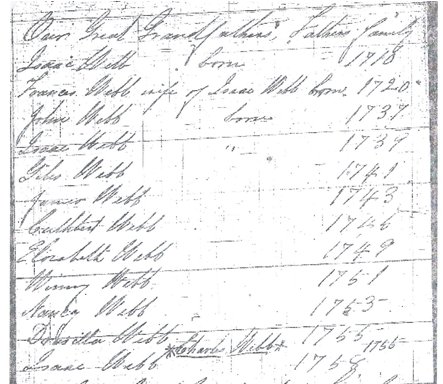 Our Great Grandfathers, Fathers family
Isaac Webb born 1718
Frances Webb wife of Isaac Webb born 1720
John Webb born 1737
Isaac Webb " 1739
Giles Webb 1741
James Webb 1743
Cuthbert Webb
Elizabeth Webb 1749
Winny Webb 1751
Nancy Webb 1753
Webb 1755
*Charles Webb* 1755
Isaac Webb 1758